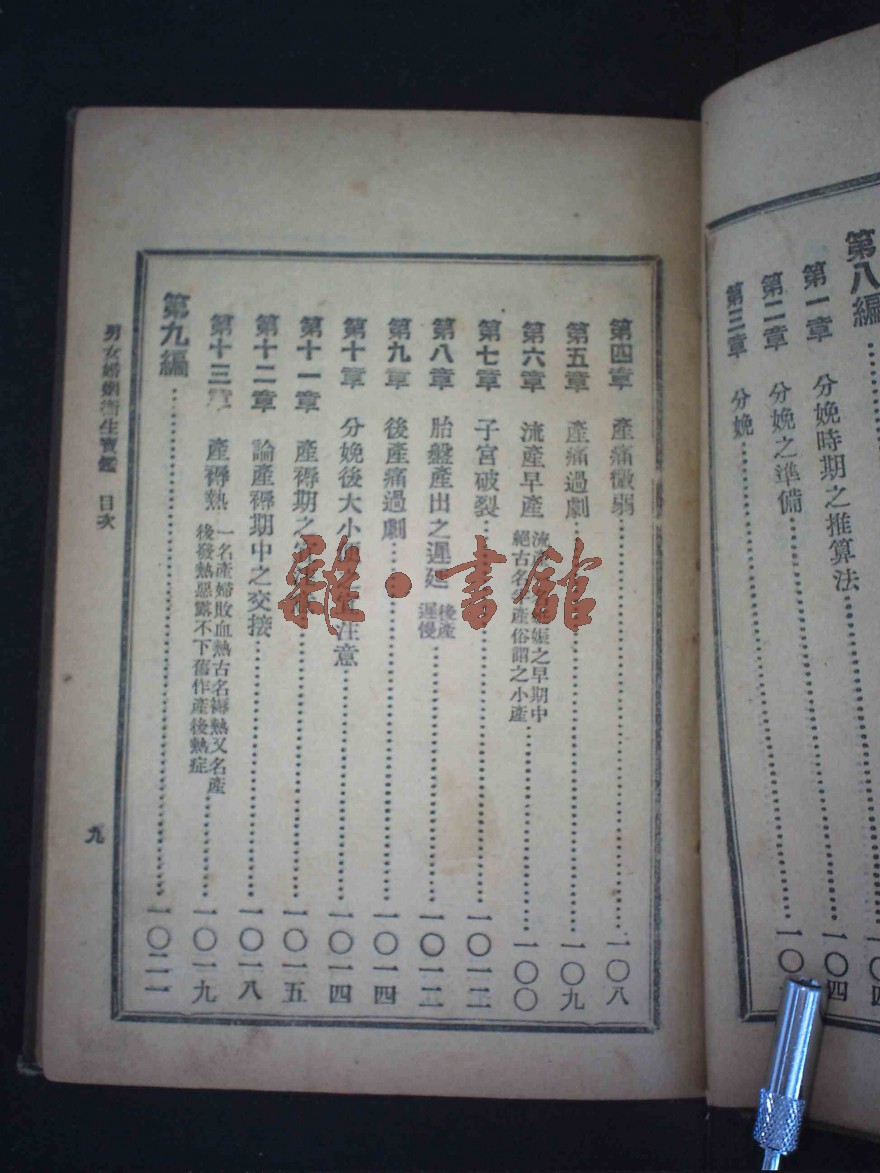 第八編
第一章 分娩時期之推算法 一〇四
第二章 分娩之準備
第三章 分娩
第四章 產痛微弱 一〇八
第五章 產痛過劇 一〇九
第六章 流產早產 流產 娠之早期中絕古名 產俗謂之小產 一〇〇
第七章 子宮破裂 一〇一二
第八章 胎盤產出之遲延 後產遲慢 一〇一二
第九章 後產痛過劇 一〇一四
第十章 分娩後大小便之 注意 一〇一四
第十一章 產褥期之 一〇一五
第十二章 論產褥期中之交接 一〇一八
第十三章 產褥熱 一名產婦敗血熱古名褥熱又名產後發熱惡露不下舊作產後熱症 一〇一九
第九編 一〇二一
男女婚姻衛生寶鑑 目次
九
雜·書館